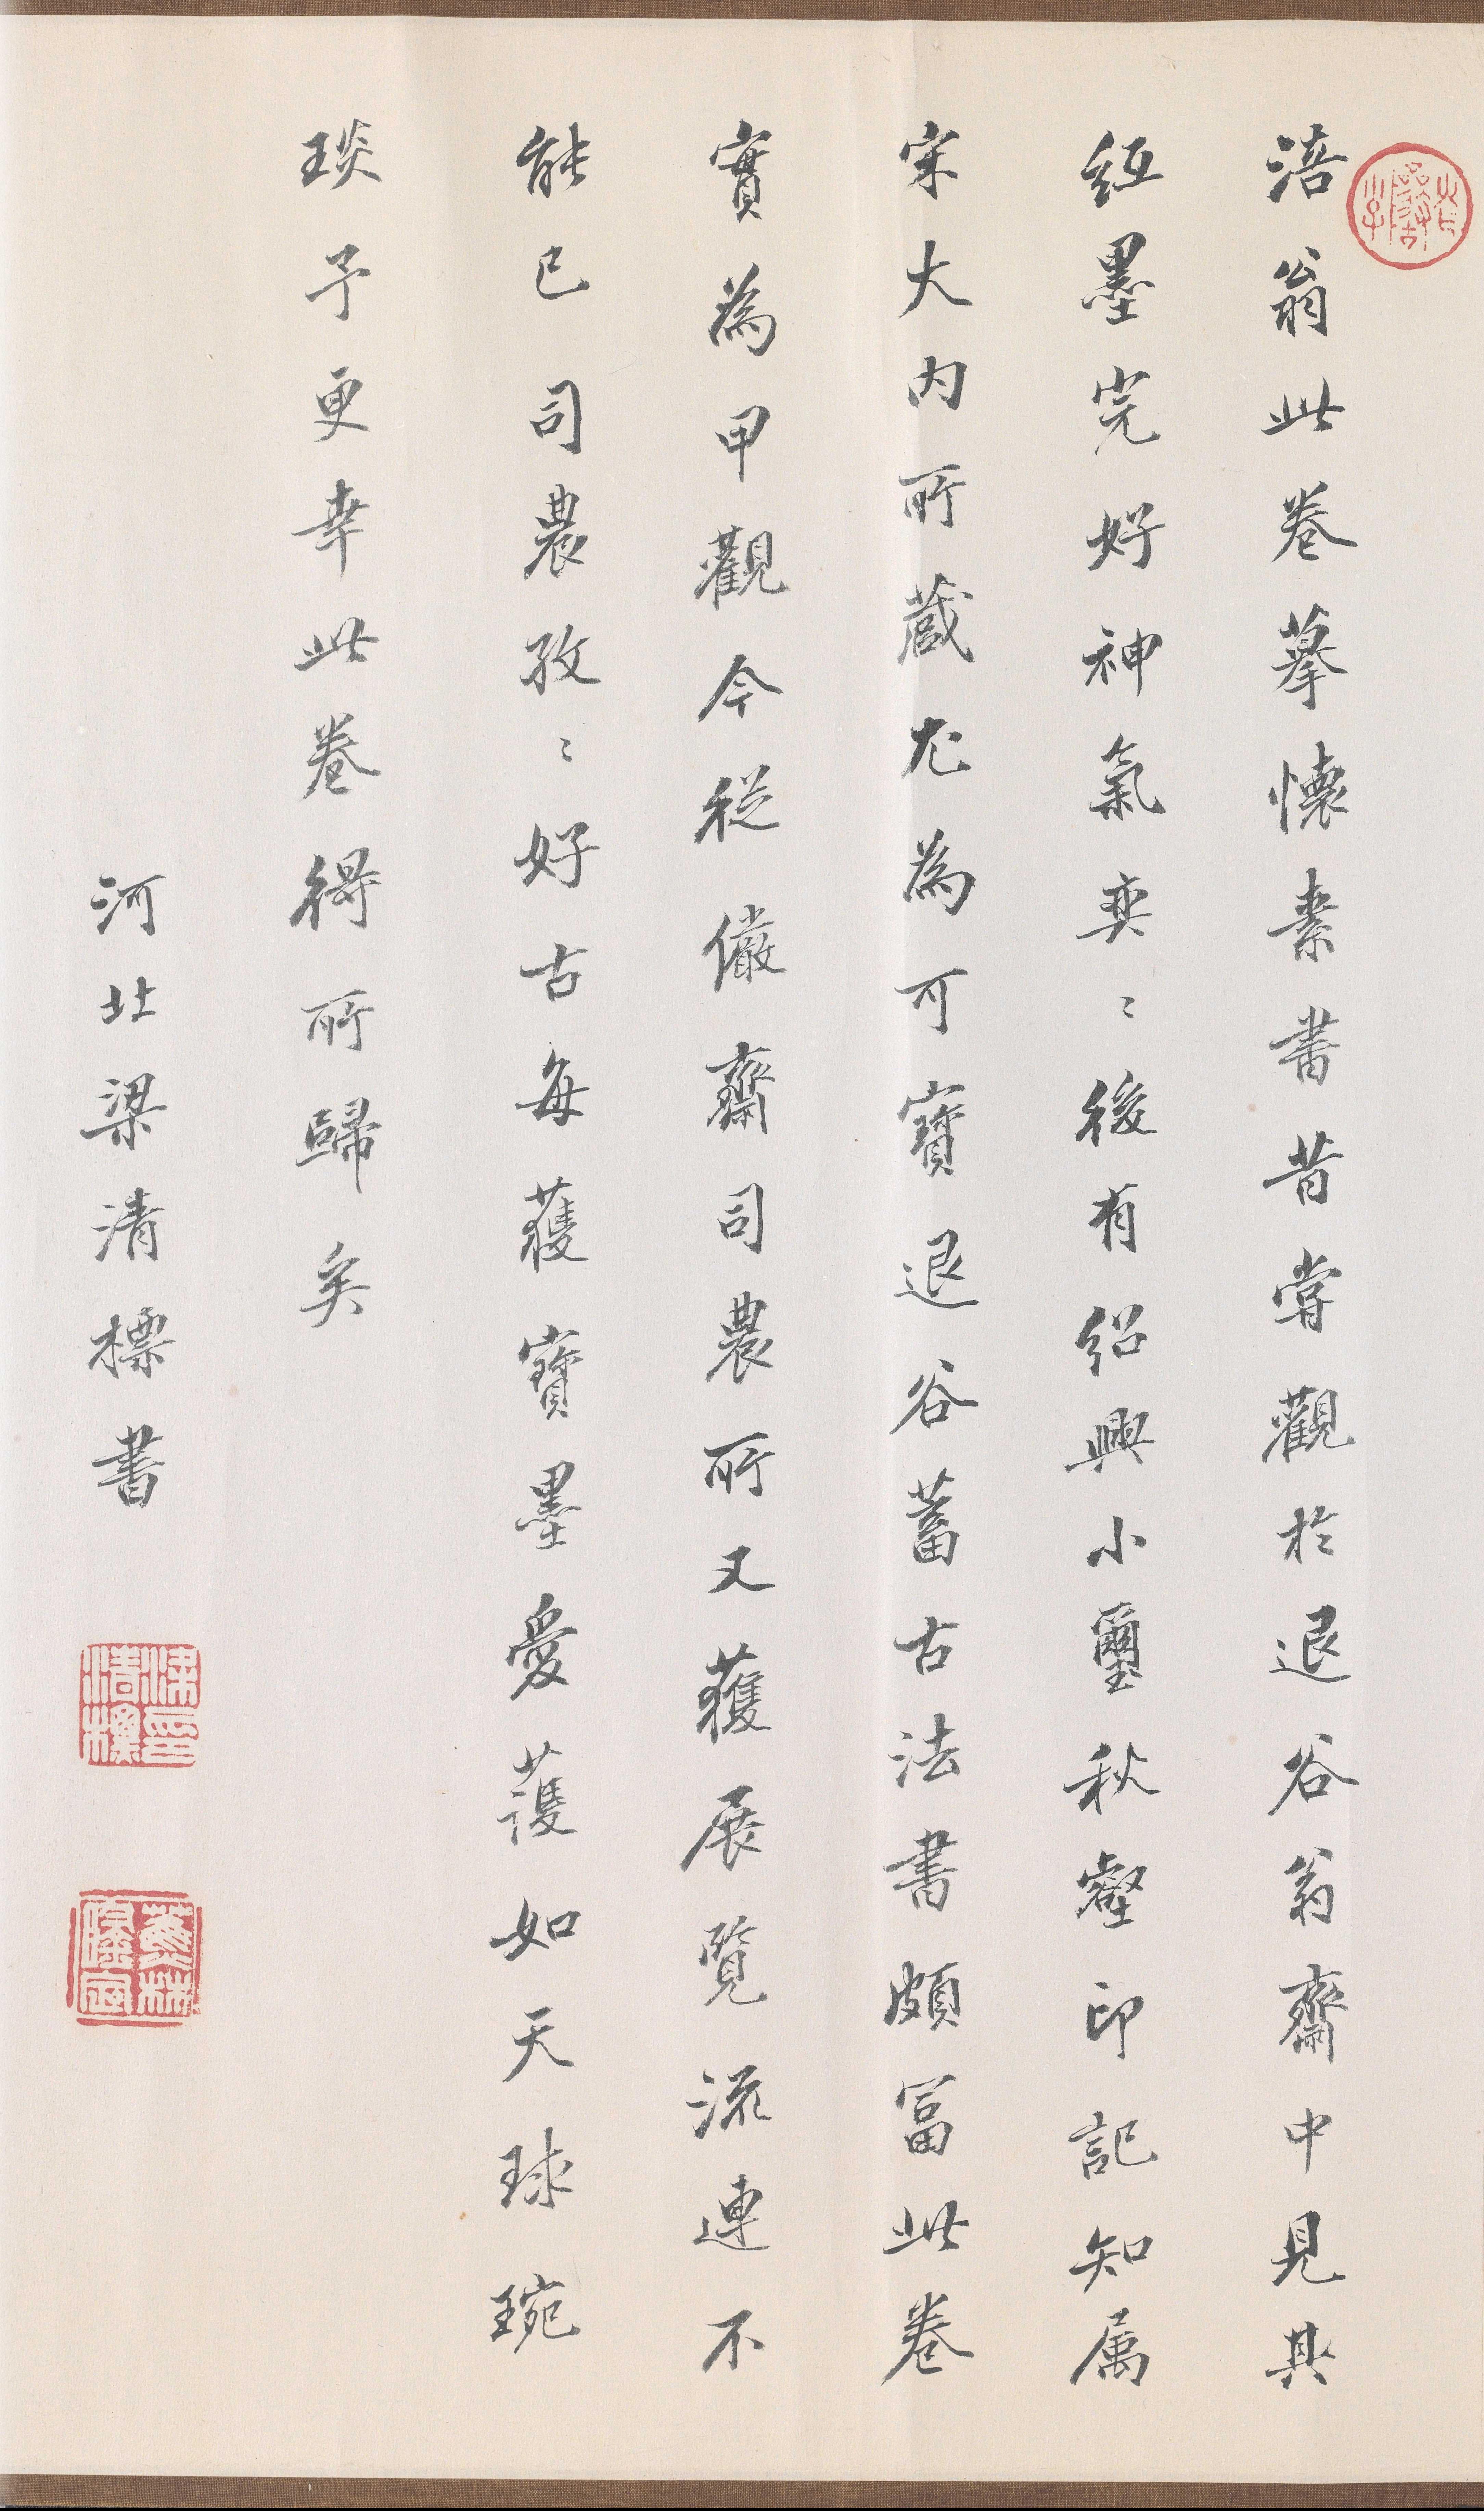 涪翁此卷摹懷素書昔嘗觀於退谷翁齋中見其
紙墨完好神氣奕〻後有紹興小璽秋壑印記知属
宋大内所蔵尤為可寶退谷蓄古法書頗富此卷
實為甲觀今從儼齋司農所又獲展覧流連不
能已司農孜〻好古每獲寶墨愛護如天球琬
琰予更幸此卷得所歸矣
河北梁清標書
梁清標印
蕉林